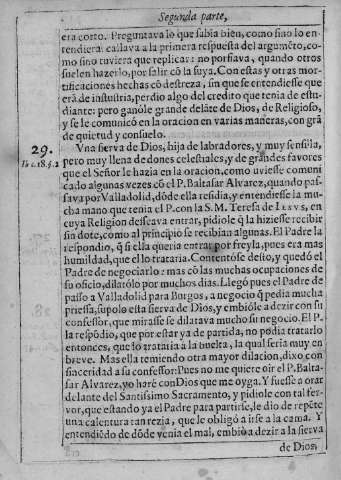 Segunda parte,
era corto. Preguntava lo que sabia bien, como sino lo en-
tendiera: callava a la primera respuesta del argumẽto, co-
mo sino tuviera que replicar: no porfiava, quando otros
suelen hazerlo, por salir cõ la suya. Con estas y otras mor-
tificaciones hechas cõ destreza, sin que se entendiesse que
era de industria, perdio algo del credito que tenia de estu-
diante: pero ganòle grande delãte de Dios, de Religioso,
y se le comunicò en la oracion en varias maneras, con grã
de quietud y consuelo.
29. Vna sierva de Dios, hija de labradores, y muy senzilla,
pero muy llena de dones celestiales, y de grandes favores
que el Señor le hazia en la oracion, como uviesse comuni
cado algunas vezes cõ el P. Baltasar Alvarez, quando pas-
sava por Valladolid, dõde ella residia, y entendiesse la mu-
cha mano que tenia el P. con la S. M. Teresa de IESVS, en
cuya Religion desseava entrar, pidiole q̃ la hiziesse recibir
sin dote, como al principio se recibian algunas. El Padre la
respondio, q̃ si ella queria entrar por freyla, pues era mas
humildad, que el lo trataria. Contentòse desto, y quedò el
Padre de negociarlo: mas cõ las muchas ocupaciones de
su oficio, dilatòlo por muchos dias. Llegó pues el Padre de
passo a Valladolid para Burgos, a negocio q̃ pedia mucha
priessa, supolo esta sierva de Dios, y embióle a dezir con su
confessor, que mirasse se dilatava mucho su negocio. El P.
la respõdio, que por estar ya de partida, no podia tratarlo
entonces, que lo trataria a la buelta, la qual seria muy en
breve. Mas ella temiendo otra mayor dilacion, dixo con
sinceridad a su confessor: Pues no me quiere oir el P. Balta-
sar Alvarez, yo harè con Dios que me oyga. Y fuesse a orar
delante del Santissimo Sacramento, y pidiole con tal fer-
vor, que estando ya el Padre para partirse, le dio de repẽte
una calentura tan rezia, que le obligó a irse a la cama. Y
entendiẽdo de dõde venia el mal, embiò a dezir a la sierva
de Dios,